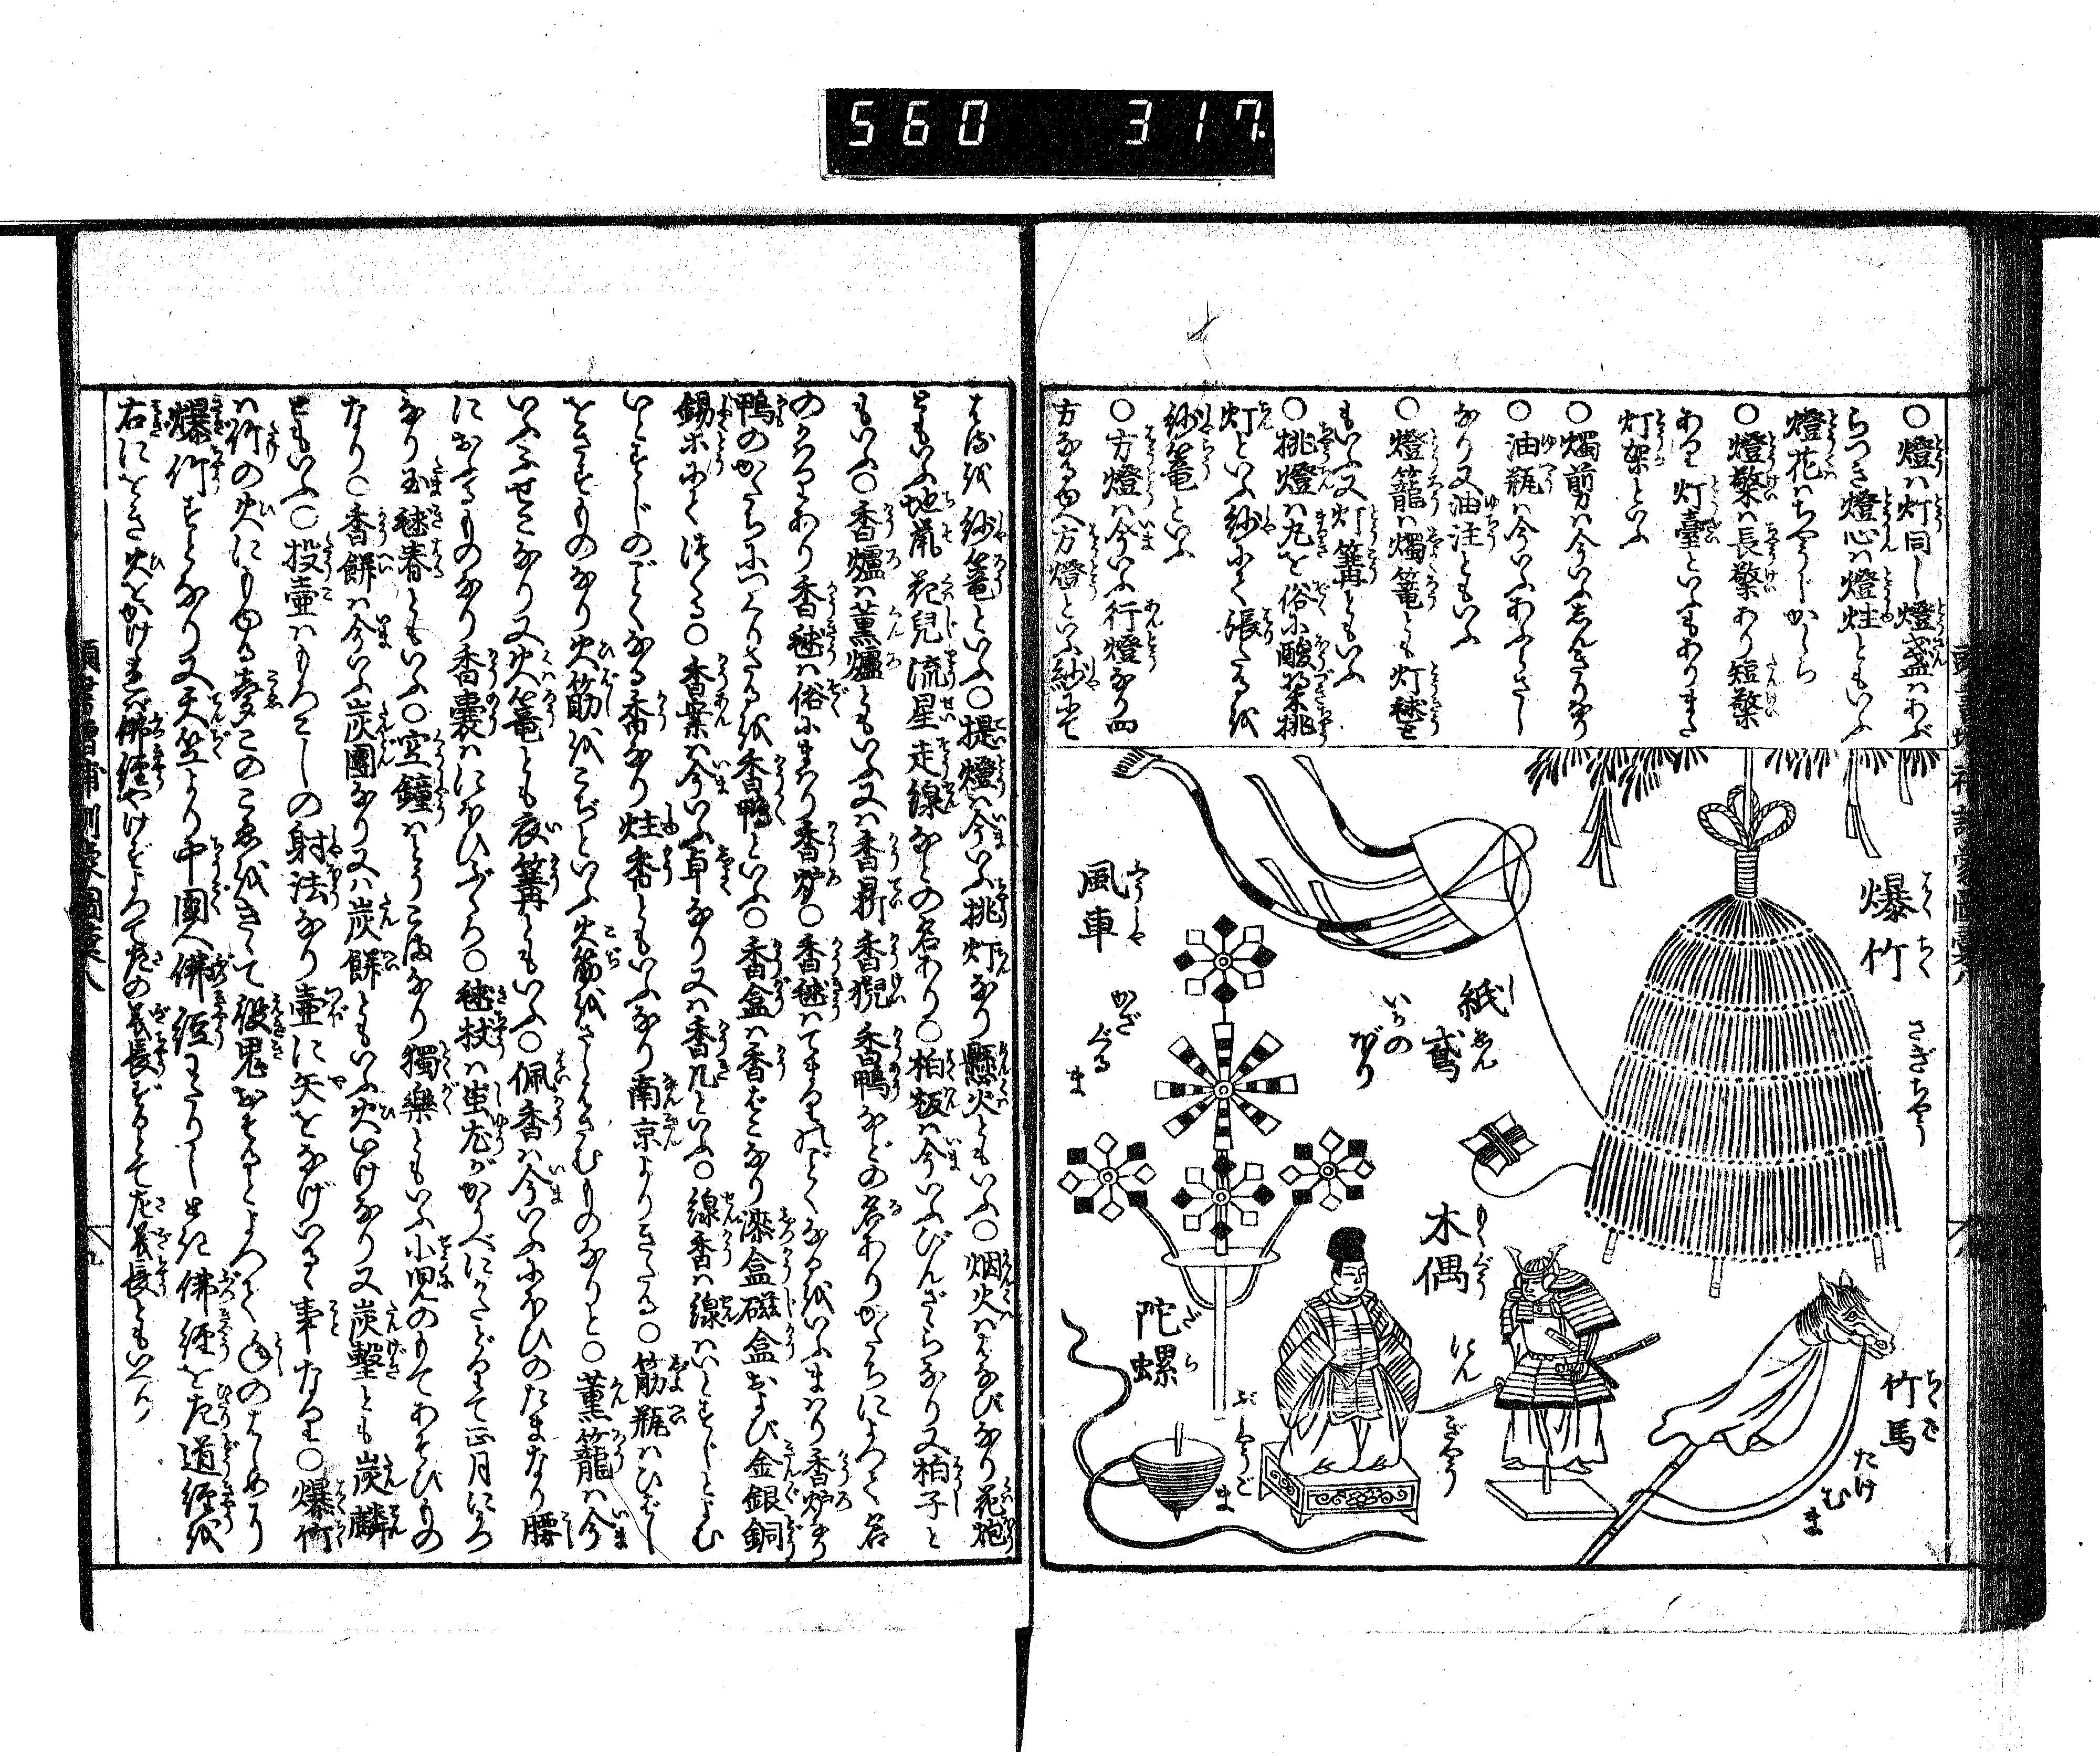 560 317.
○燈ハ灯同し燈盞ハあぶ
らつき燈心ハ燈炷ともいふ
燈花ハちやうじかしら
○燈檠ハ長檠あり短檠
あり灯臺といふもありまた
灯架といふ
○燭剪ハ今いふしんきりなり
○油瓶ハ今いふあふらさし
なり又油注ともいふ
○燈籠ハ燭篭とも灯毬と
もいふ又灯篝ともいふ
○挑燈ハ丸を俗に酸漿挑
灯といふ紗にて張たるを
紗篭といふ
○方燈ハ今いふ行燈なり四
方なるゆへ方燈といふ紗にて
爆竹 ばくちく さぎちやう
紙鳶 しゑん いかのぼり
風車 ふうしや かざぐるま
木偶 もくぐう にんぎやう
陀螺 だら ぶしやうごま
竹馬 ちくば たけむま
はるを紗篭といふ○提燈ハ今いふ挑灯なり懸火ともいふ○烟火ハはなびなり花炮
ともいふ地鼠花兒流星走線などの名あり○柏板ハ今いふびんざゝらなり又柏子と
もいふ○香爐ハ薫爐ともいふ又ハ香鼎香猊香鴨などの名ありかたちによつて名
のかはりあり香毬ハ俗にまはり香炉○香毬ハてまりのごとくなるをいふまはり香炉なり
鴨のかたちにつくりたるを香鴨といふ○香盒ハ香ばこなり漆盒磁盒および金銀銅
錫ホにてつくる○香案ハ今いふ卓なり又ハ香几といふ○線香ハ線ハいとすじとよむ
いとすじのごとくなる香なり炷香ともいふなり南京よりきたる○筋瓶ハひばし
をさすものなり火筋をこぢといふ火筋をさしはさむものなりと○薫籠ハ今
いふふせこなり又火篭とも衣篝ともいふ○佩香ハ今いふにほひのたまなり腰
におふるものなり香嚢ハにほひぶくろ○毬杖ハ蚩尤がかうべにかたどりて正月にう
なり玉毬春ともいふ○空鐘ハとうごまなり獨樂ともいふ小児のもてあそびもの
なり○香餅ハ今いふ炭團なり又ハ炭餅ともいふ火いけなり又炭墼とも炭麟
ともいふ○投壷ハもろこしの射法なり壷に矢をなげいるゝ事なり○爆竹
ハ竹の火にもゆる声このこゑをきゝて疫鬼おそるとよつて年のはじめに
爆竹すとなり又天竺より中國へ佛経わたりしとき佛経を左道経を
右にをき火をかけしに佛経やけざるつて左の義長ずるとて左義長ともいへり